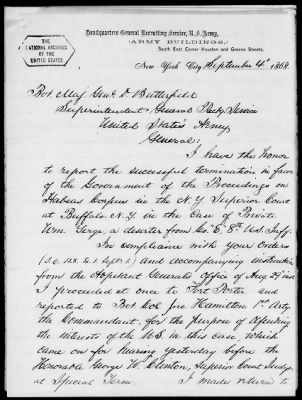 Headquarters General Recruiting Service, U.S. Army,
(ARMY BUILDING,)
South East Corner Houston and Greene Streets,
THE
NATIONAL ARCHIVES
OF THE
UNITED STATES
New York City, September 4th 1868.
Bvt Maj Genl D Butterfield
Superintendent General Rectg Service
United States Army
General:
I have the honor
to report the successful termination in favor
of the Government of the Proceedings on
Habeas Corpus in the N.Y. Superior Court
at Buffalo N.Y. in the Case of Private
Wm. a deserter from Co. E. 8th U.S. Inffy.
In compliance with your Orders
(S.O. 128. Sept. 1) and accompanying instructions
from the Adjutant Generals Office of Aug 29 inst
I proceeded at once to Fort Porter and
reported to Bvt Col Jno Hamilton 1st Arty
the Commandant, for the purpose of defending
the interests of the U.S. in this case, which
came on for hearing yesterday before the
Honorable George W. Clinton, Superior Court Judge
at Special Term. I made return to